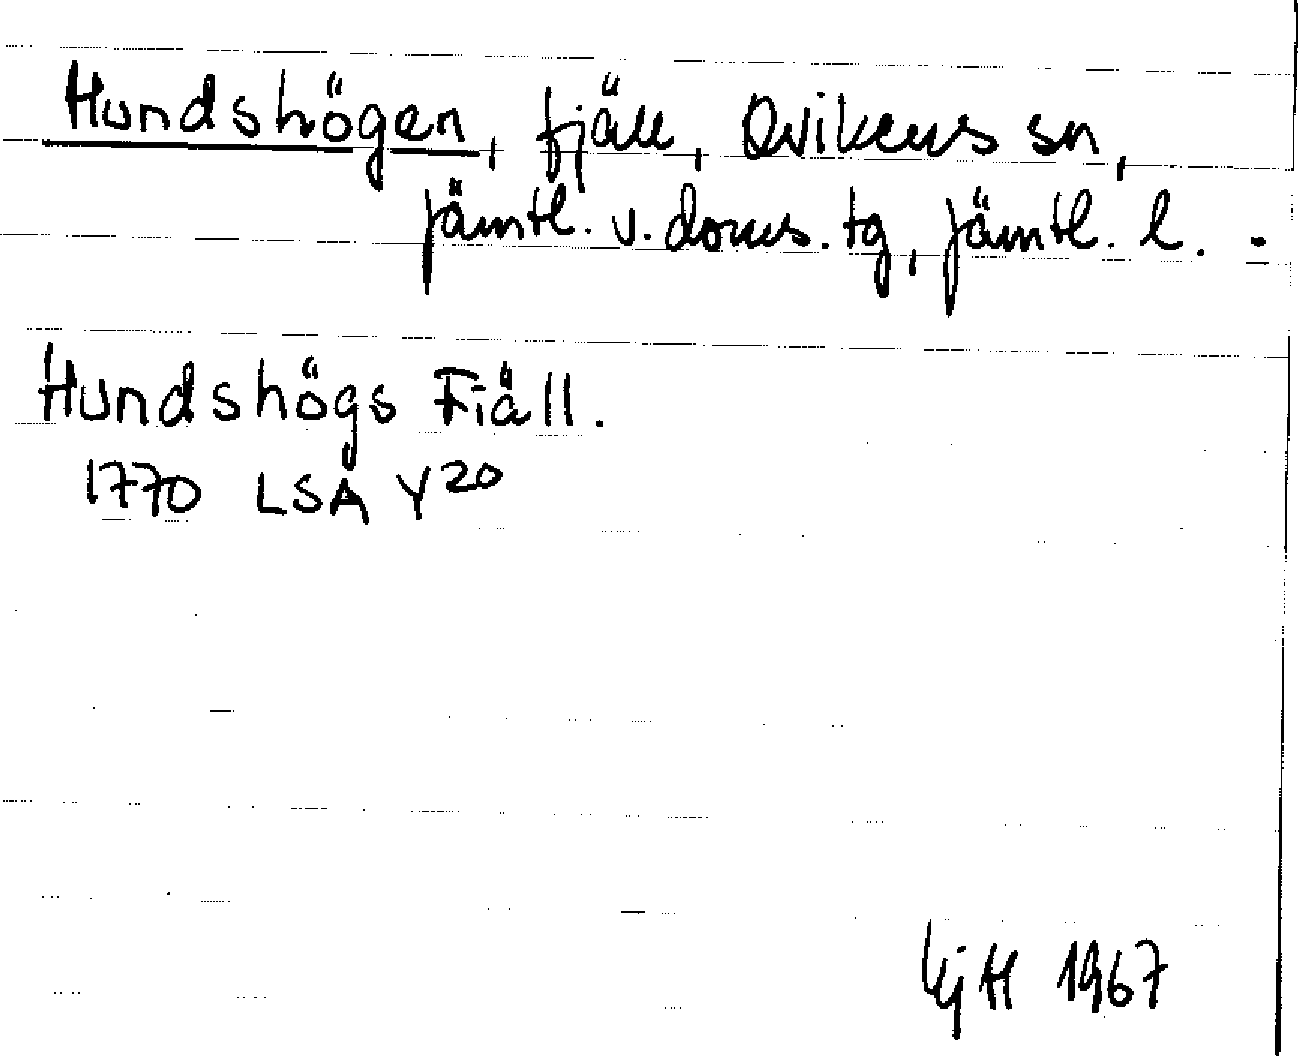 Hundshögen, fjäll, Ovikens sn,
Jämtl. v. doms. tg, Jämtl. l. -
Hundshögs Fiäll.
1770 LSA Y20
1967